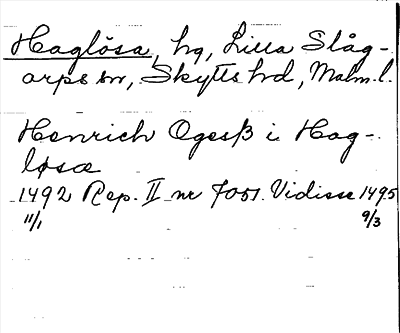 Haglösa, hg, Lilla Slåg-
arps sn, Skytts hd, Malm.l.
Henrich Ogesß i Hag-
løsæ
1492 Rep. II nr 7051. Vidisse 1495
11/1 9/3